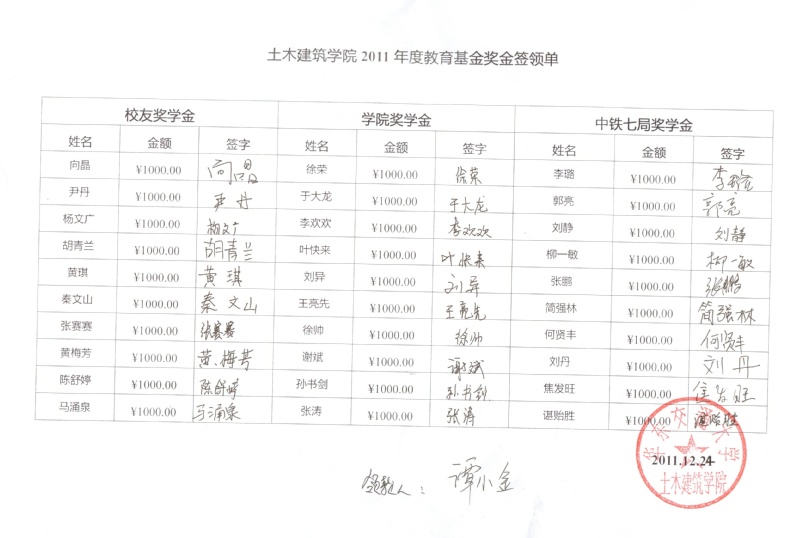 土木建筑学院 2011 年度教育基金奖金签领单
校友奖学金 学院奖学金 中铁七局奖学金
姓名 金额 签字 姓名 金额 签字 姓名 金额 签字
向晶 ¥1000.00 向晶 徐荣 ¥1000.00 徐荣 李璐 ¥1000.00 李璐
尹丹 ¥1000.00 尹丹 于大龙 ¥1000.00 于大龙 郭亮 ¥1000.00 郭亮
杨文广 ¥1000.00 杨文广 李欢欢 ¥1000.00 李欢欢 刘静 ¥1000.00 刘静
胡青兰 ¥1000.00 胡青兰 叶快来 ¥1000.00 叶快来 柳一敏 ¥1000.00 柳一敏
黄琪 ¥1000.00 黄琪 刘异 ¥1000.00 刘异 张鹏 ¥1000.00 张鹏
秦文山 ¥1000.00 秦文山 王亮先 ¥1000.00 王亮先 简强林 ¥1000.00 简强林
张赛赛 ¥1000.00 张赛赛 徐帅 ¥1000.00 徐帅 何贤丰 ¥1000.00 何贤丰
黄梅芳 ¥1000.00 黄梅芳 谢斌 ¥1000.00 谢斌 刘丹 ¥1000.00 刘丹
陈舒婷 ¥1000.00 陈舒婷 孙书剑 ¥1000.00 孙书剑 焦发旺 ¥1000.00 焦发旺
马涌泉 ¥1000.00 马涌泉 张涛 ¥1000.00 张涛 谌贻胜 ¥1000.00 谌贻胜
华东交通大学
2011.12.24
土木建筑学院
领款人：谭小金